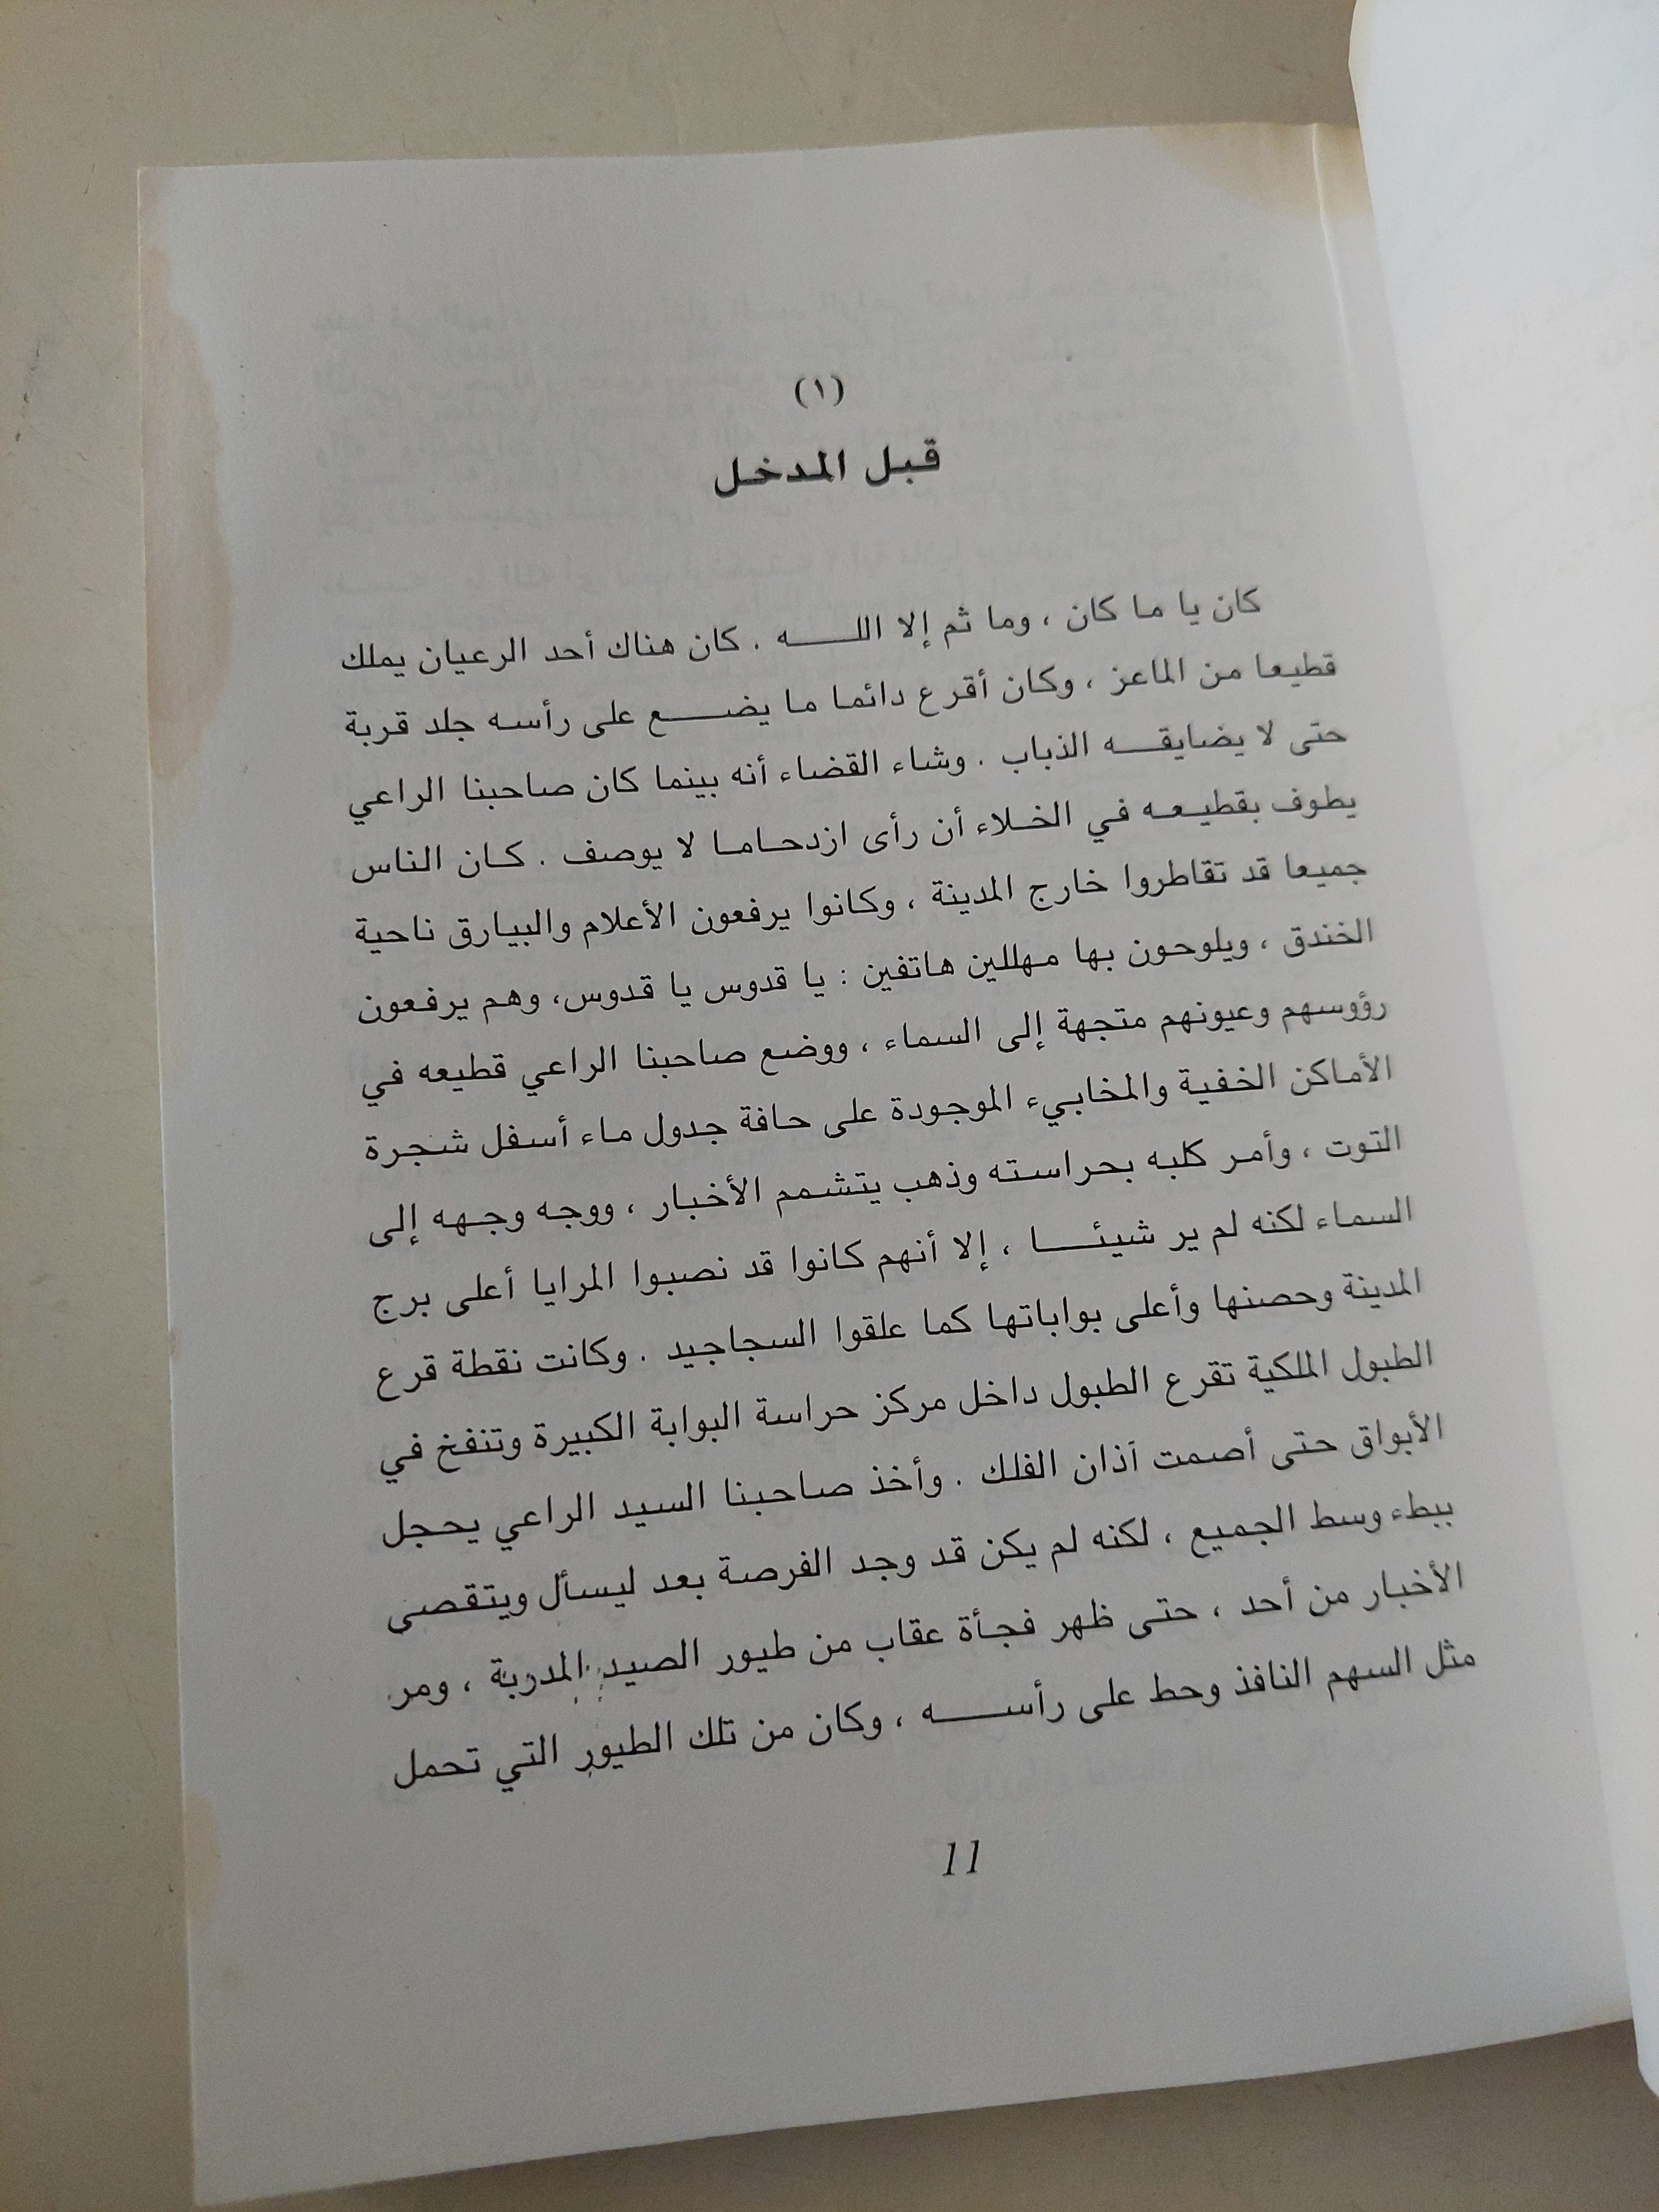 (١)
قبل المدخل
كان يا ما كان ، وما ثم إلا اللـــــه . كان هناك أحد الرعيان يملك
قطيعا من الماعز ، وكان أقرع دائما ما يضـــــع على رأسه جلد قربة
حتى لا يضايقــــه الذباب . وشاء القضاء أنه بينما كان صاحبنا الراعي
يطوف بقطيعه في الخلاء أن رأى ازدحاما لا يوصف . كان الناس
جميعا قد تقاطروا خارج المدينة ، وكانوا يرفعون الأعلام والبيارق ناحية
الخندق ، ويلوحون بها مهللين هاتفين : يا قدوس يا قدوس، وهم يرفعون
رؤوسهم وعيونهم متجهة إلى السماء ، ووضع صاحبنا الراعي قطيعه في
الأماكن الخفية والمخابيء الموجودة على حافة جدول ماء أسفل شجرة
التوت ، وأمر كلبه بحراسته وذهب يتشمم الأخبار ، ووجه وجهه إلى
السماء لكنه لم ير شيئـــــا ، إلا أنهم كانوا قد نصبوا المرايا أعلى برج
المدينة وحصنها وأعلى بواباتها كما علقوا السجاجيد . وكانت نقطة قرع
الطبول الملكية تقرع الطبول داخل مركز حراسة البوابة الكبيرة وتنفخ في
الأبواق حتى أصمت آذان الفلك . وأخذ صاحبنا السيد الراعي يحجل
ببطء وسط الجميع ، لكنه لم يكن قد وجد الفرصة بعد ليسأل ويتقصى
الأخبار من أحد ، حتى ظهر فجأة عقاب من طيور الصيد المدربة ، ومر
مثل السهم النافذ وحط على رأســـــه ، وكان من تلك الطيور التي تحمل
11